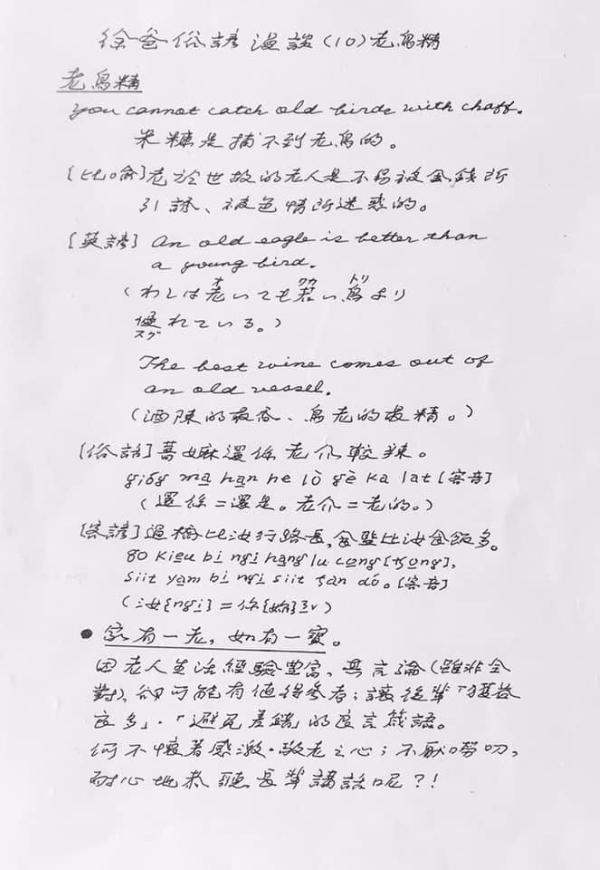 徐爸俗諺漫談(10)老鳥精
老鳥精
you cannot catch old birds with chaff.
米糠是捕不到老鳥的。
[比喻]老於世故的老人是不易被金錢所
引誘、被色情所迷惑的。
[英諺] An old eagle is better than
a young bird.
(わしは老いても若い鳥より
優れている。)
The best wine comes out of
an old vessel.
(酒陳的最香、鳥老的最精。)
[俗話]薑嫲還係老介較辣。
giǒg ma han he lò gè ka lat [客音]
(還係=還是。老介=老的。)
[客諺]過橋比汝行路長,食鹽比汝食飯多。
go kieu bi ngi hang lu cong [tʃong],
siit yam bi ngi siit fan dó。[客音]
(汝{ngi}=你)
● 家有一老,如有一寶。
因老人生活經驗豐富、其言論(雖非全
對)、卻可能有值得參考;讓後輩「獲益
良多」·「避免差錯」的良言箴語。
何不懷著感激·敬老之心;不厭嘮叨,
耐心地恭聽長輩講話呢?!